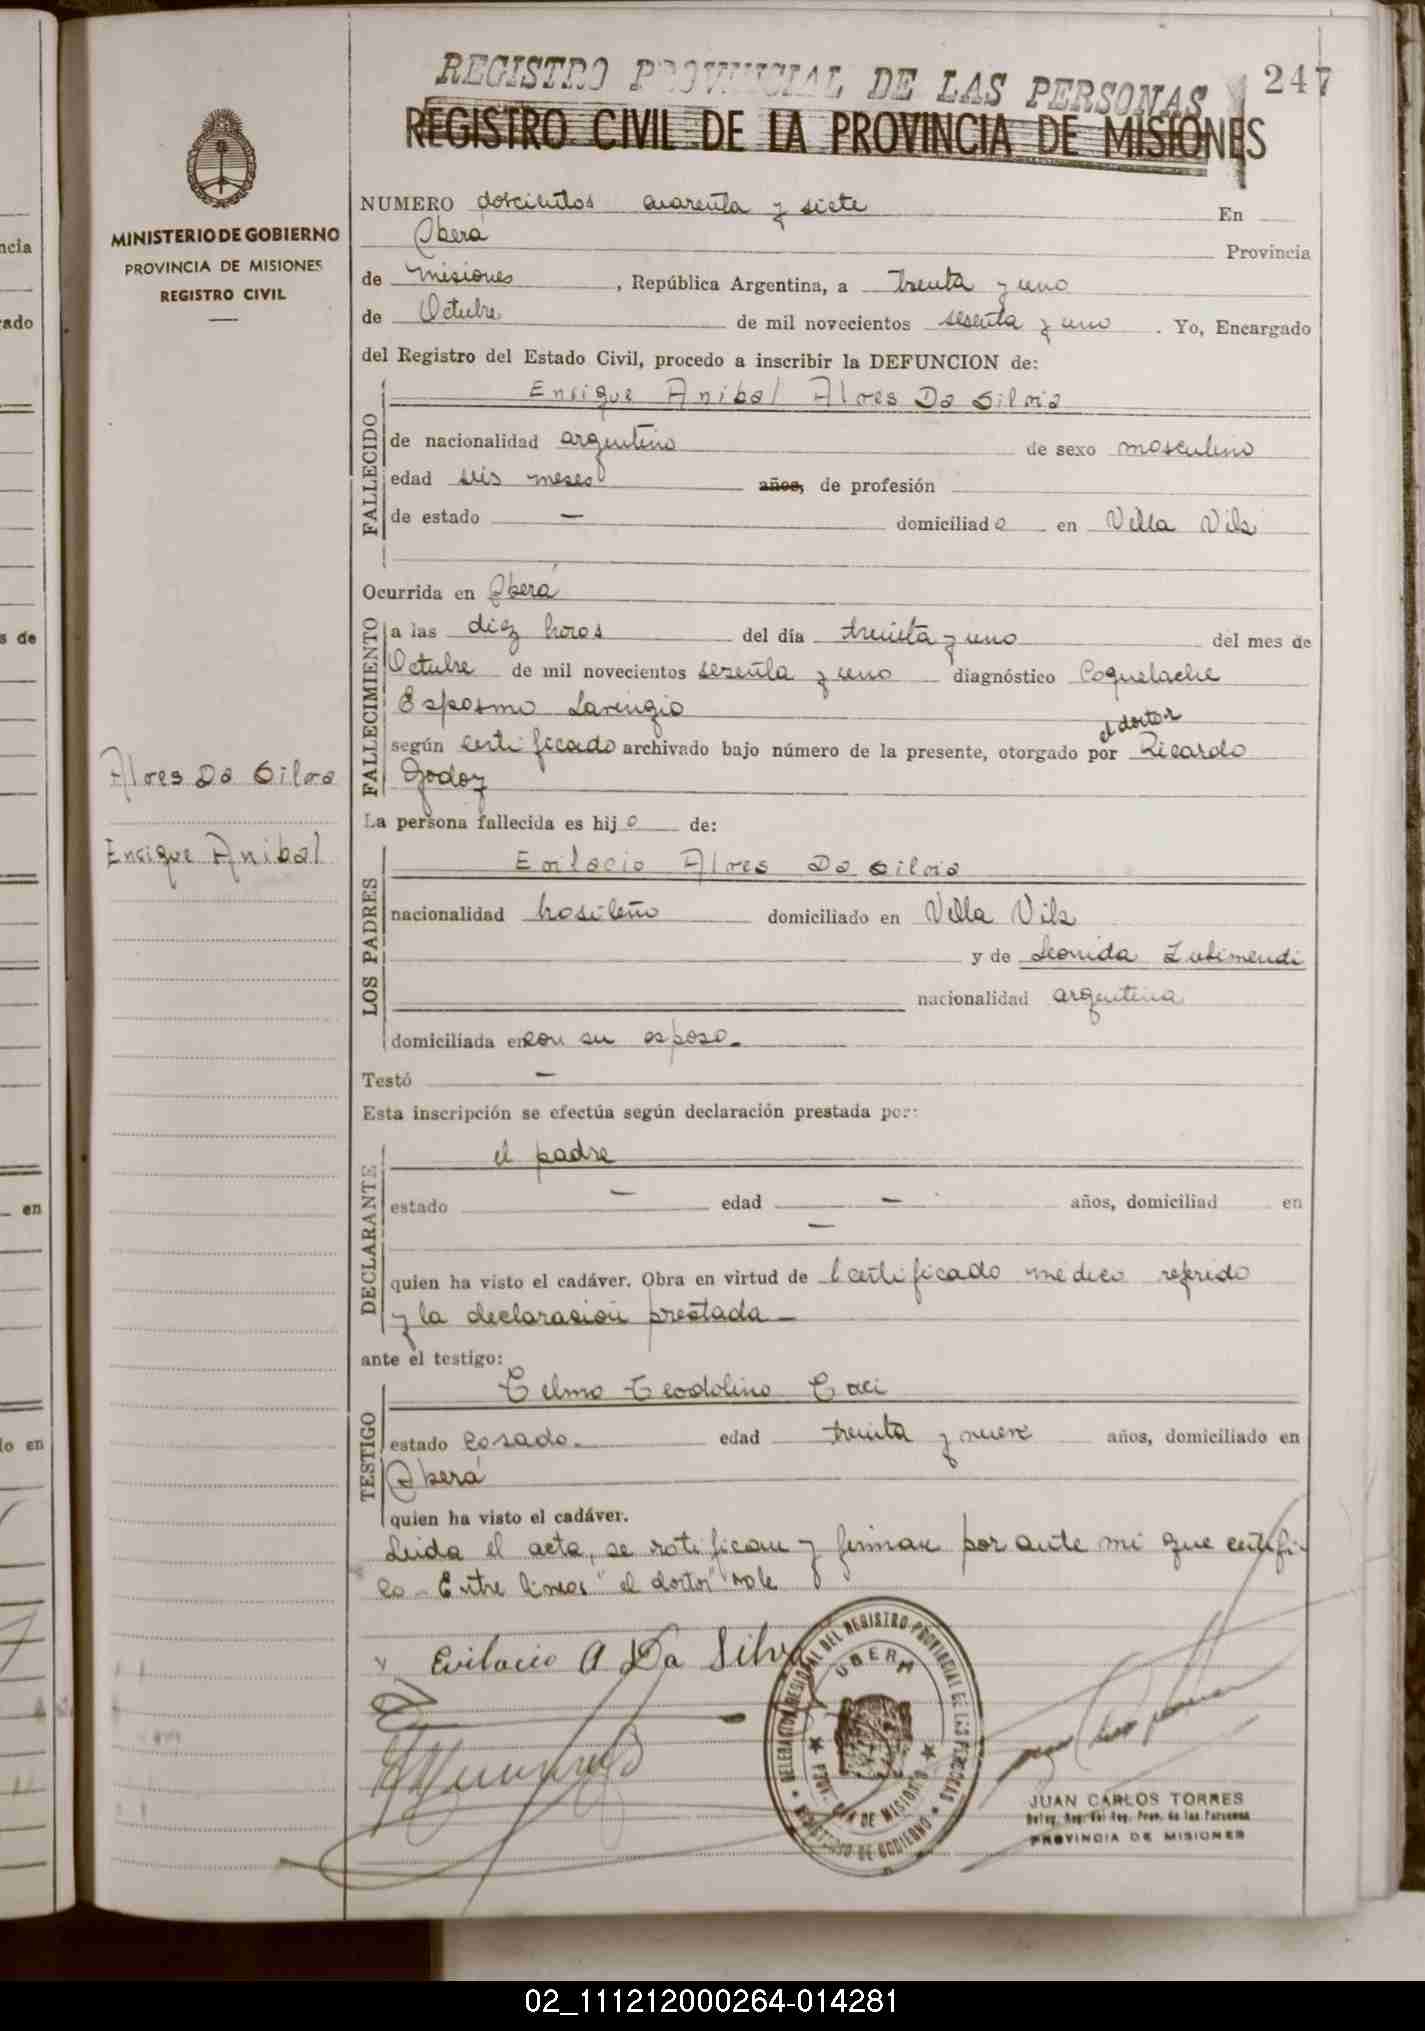 REGISTRO PROVINCIAL DE LAS PERSONAS
247
REGISTRO CIVIL DE LA PROVINCIA DE MISIONES
MINISTERIO DE GOBIERNO
PROVINCIA DE MISIONES
REGISTRO CIVIL
NUMERO doscientos cuarenta y siete En
Oberá Provincia
de Misiones, República Argentina, a treinta y uno
de Octubre de mil novecientos sesenta y uno. Yo, Encargado
del Registro del Estado Civil, procedo a inscribir la DEFUNCION de:
FALLECIDO
Enrique Anibal Alves Da Silva
de nacionalidad argentino de sexo masculino
edad seis meses años, de profesión
de estado — domiciliado en Villa Vila
Ocurrida en Oberá
FALLECIMIENTO
a las diez horas del día treinta y uno del mes de
Octubre de mil novecientos sesenta y uno diagnóstico Coqueluche
Espasmo Laringio
el doctor
según certificado archivado bajo número de la presente, otorgado por Ricardo
Godoy
Alves Da Silva
Enrique Anibal
La persona fallecida es hijo de:
LOS PADRES
Evilacio Alves Da Silva
nacionalidad brasileño domiciliado en Villa Vila
y de Leonida Zubimendi
nacionalidad argentina
domiciliada en con su esposo.
Testó —
Esta inscripción se efectúa según declaración prestada por:
DECLARANTE
el padre
estado — edad — años, domiciliad en
—
quien ha visto el cadáver. Obra en virtud de certificado médico referido
y la declaración prestada —
ante el testigo:
TESTIGO
Telmo Teodolino
estado casado. edad treinta y nueve años, domiciliado en
Oberá
quien ha visto el cadáver.
Leida el acta, se ratifican y firman por ante mi que certifi
co - Entre lineas "el doctor" vale
Evilacio A Da Silva
DELEGACION REGIONAL DEL REGISTRO PROVINCIAL DE LAS PERSONAS
OBERA
PROVINCIA DE MISIONES
MINISTERIO DE GOBIERNO
JUAN CARLOS TORRES
Deleg. Reg. del Reg. Prov. de las Personas
PROVINCIA DE MISIONES
02_111212000264-014281